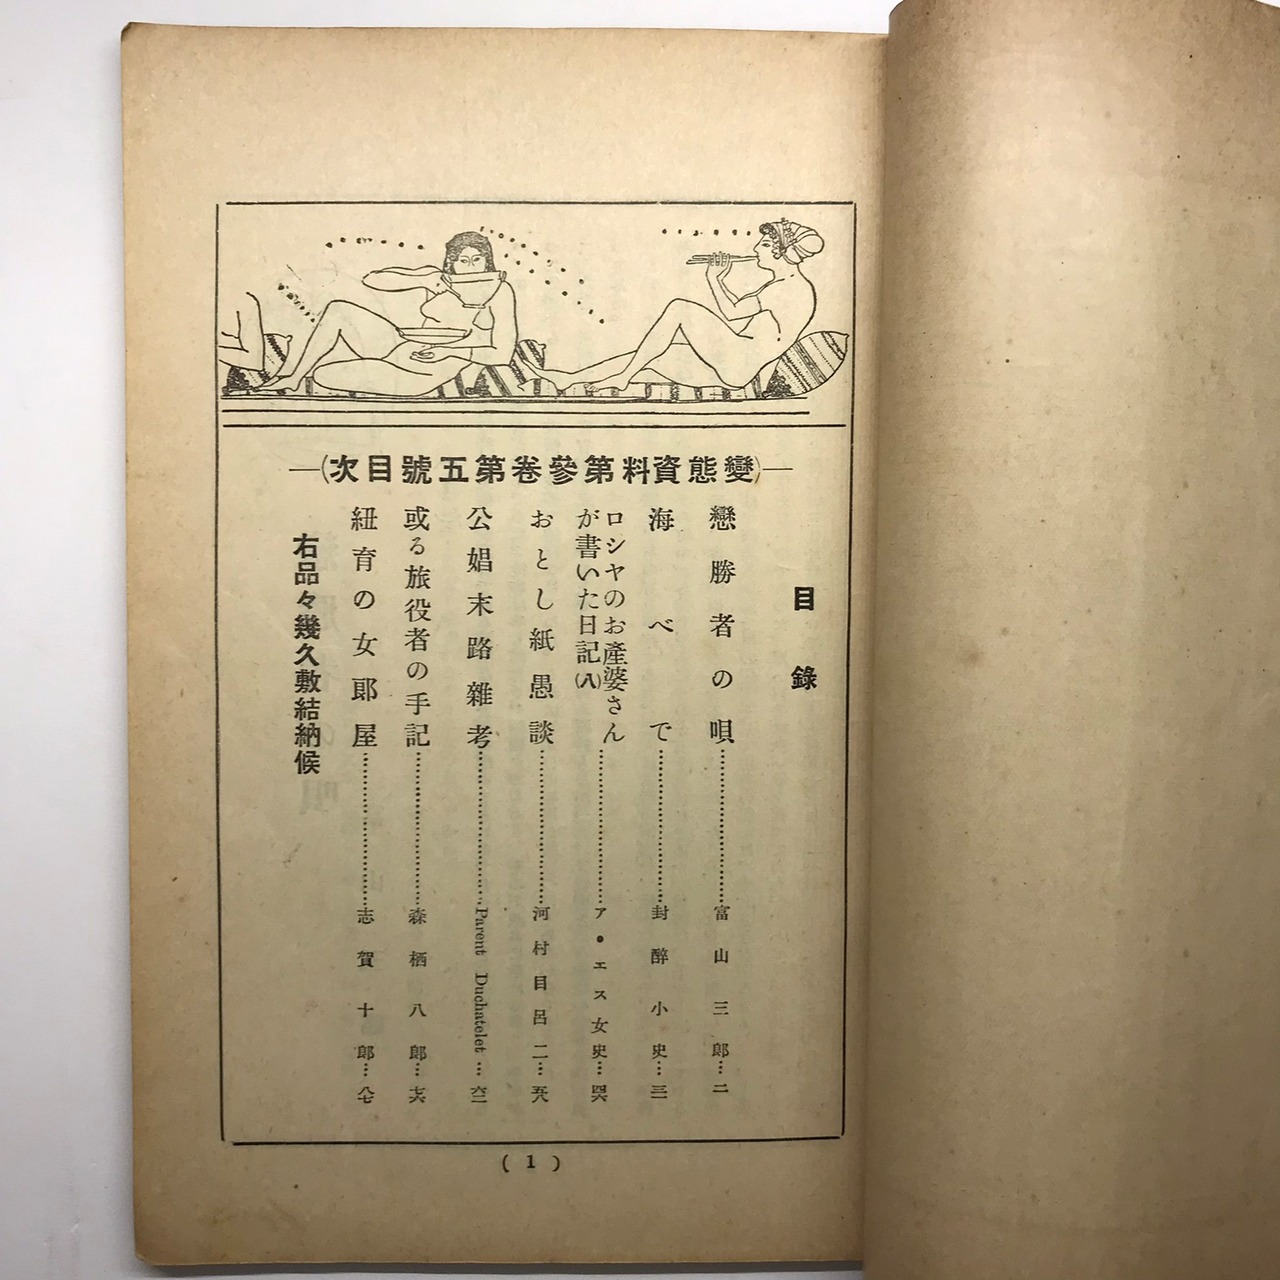 —(變態資料第參卷第五號目次)—
目錄
戀勝者の唄……富山三郎…二
海べで……封醉小史…三一
ロシヤのお產婆さん
が書いた日記(八)……ア・エス女史…四六
おとし紙愚談……河村目呂二…五八
公娼末路雜考……Parent Duchatelet…六二
或る旅役者の手記……森栖八郎…七六
紐育の女郎屋……志賀十郎…八七
右品々幾久敷結納候
( 1 )